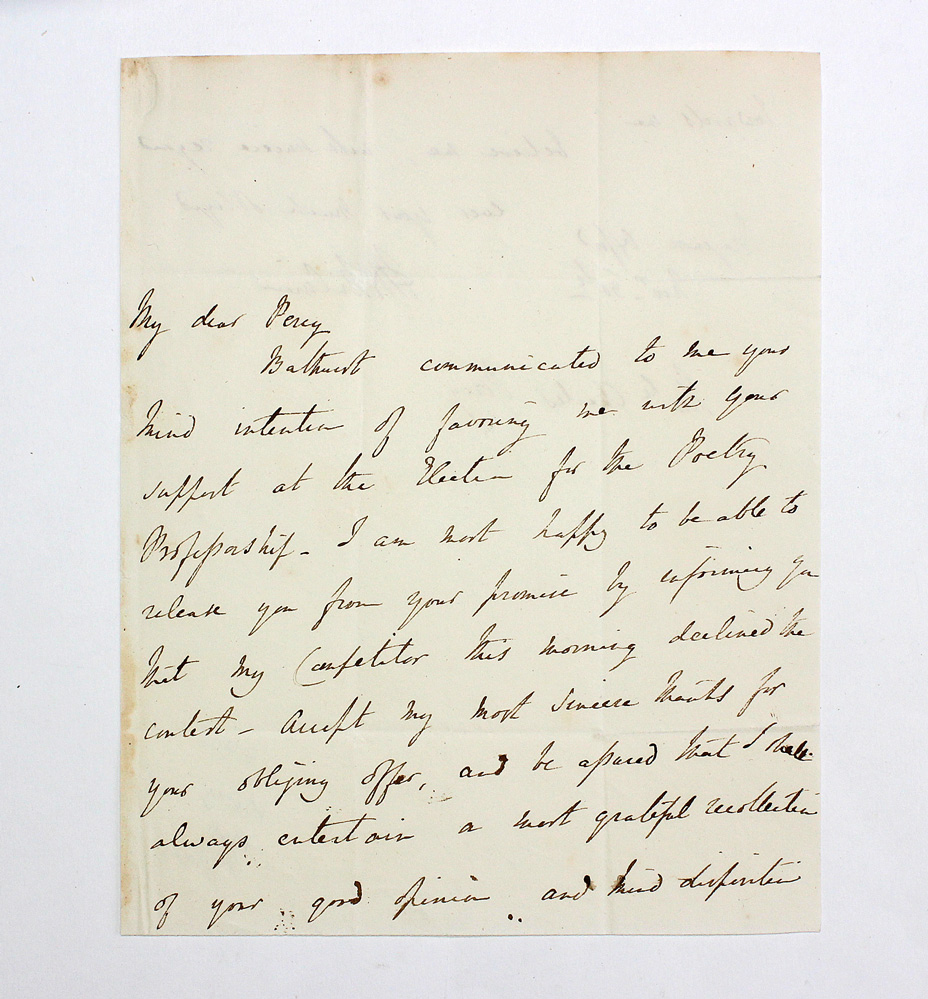 My dear Percy
Bathurst communicated to me your
kind intention of favoring me with your
support at the Election for the Poetry
Professorship - I am most happy to be able to
release you from your promise by informing you
that my Competitor this morning declined the
contest - Accept my most sincere thanks for
your obliging offer, and be assured that I shall
always entertain a most grateful recollection
of your good opinion and kind disposition